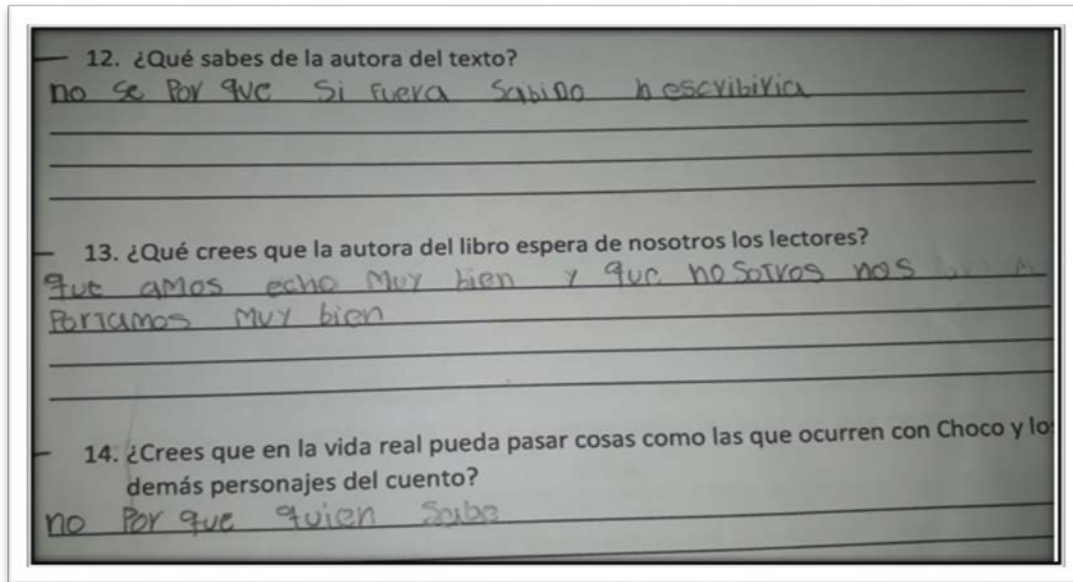 12. ¿Qué sabes de la autora del texto?
no se Por que Si Fuera Sabido h escribiria
13. ¿Qué crees que la autora del libro espera de nosotros los lectores?
que amos echo Muy bien y que nosotros nos
Portamos Muy bien
14. ¿Crees que en la vida real pueda pasar cosas como las que ocurren con Choco y los
demás personajes del cuento?
no Por que quien Sabe